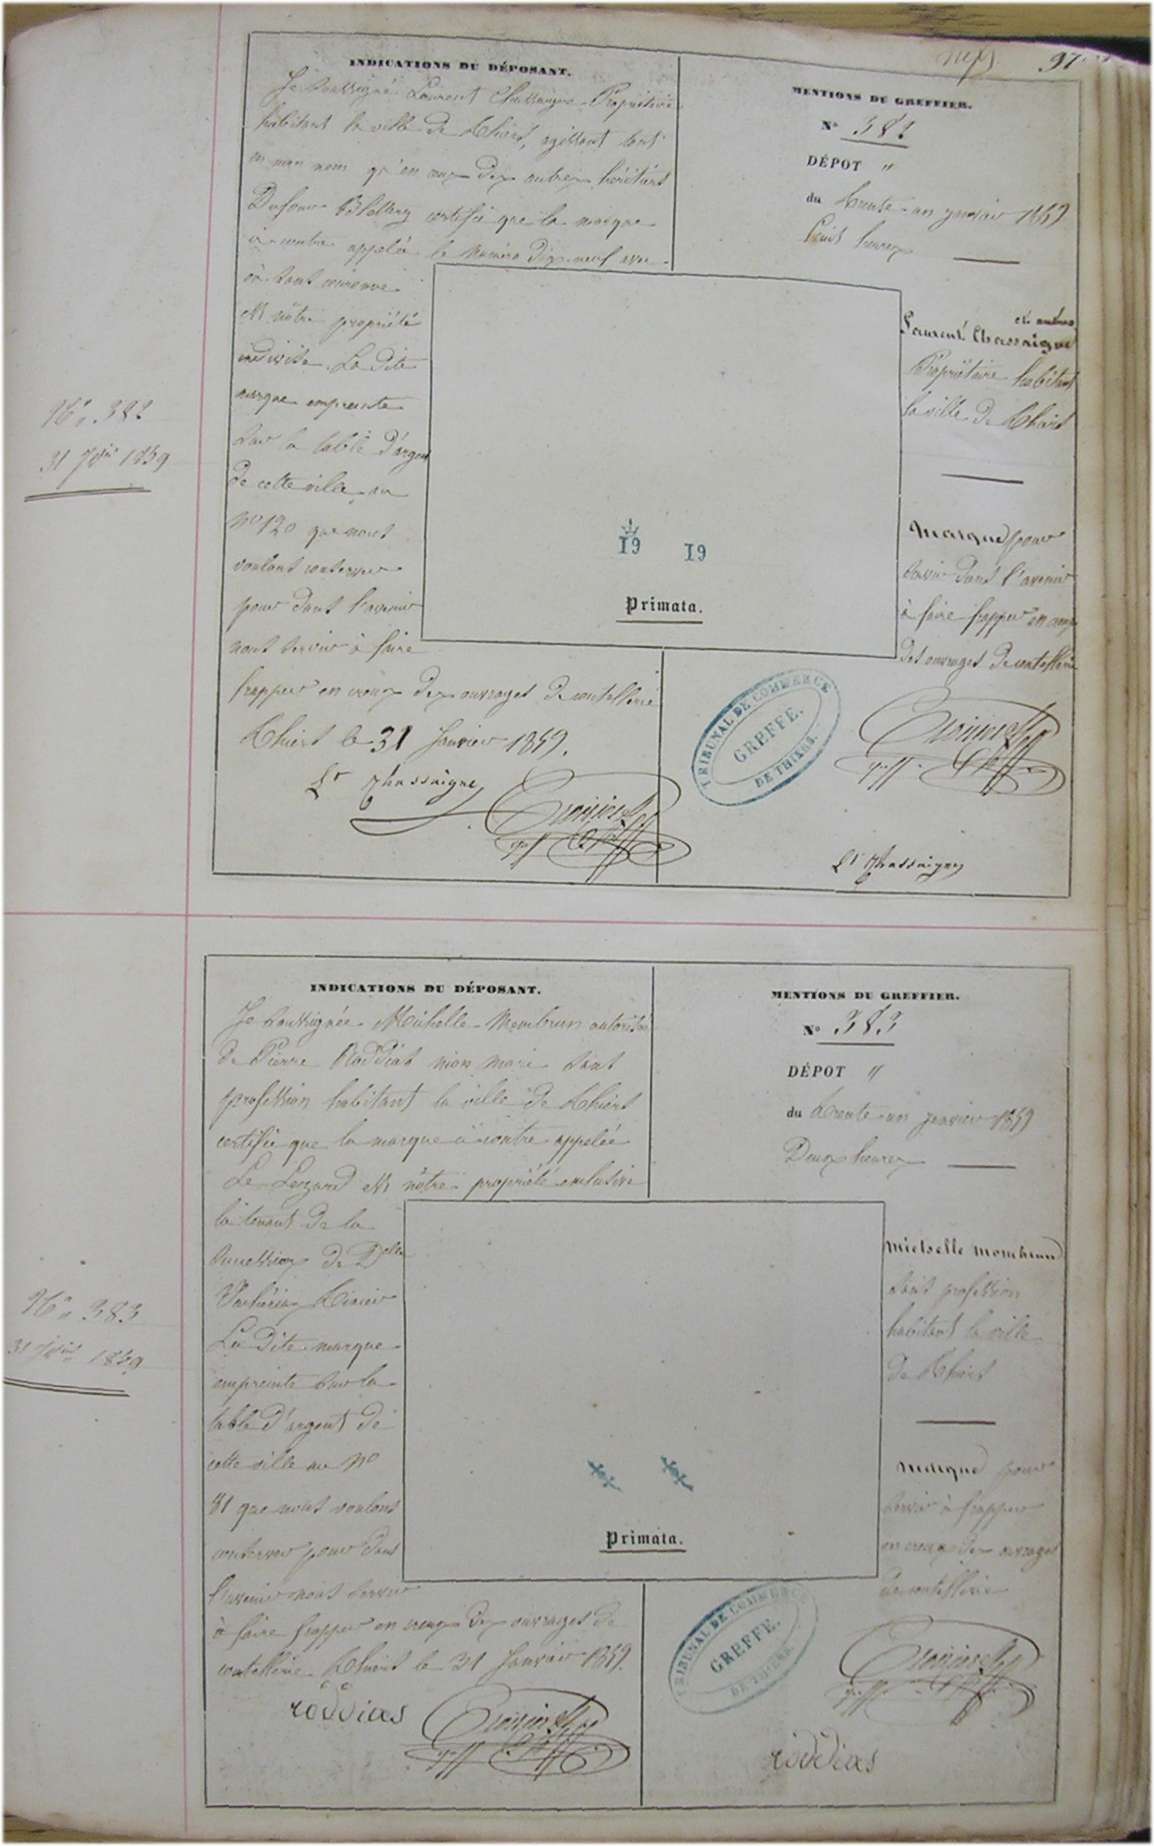 97
INDICATIONS DU DÉPOSANT.
Je soussigné Laurent Chassaigne Propriétaire
habitant la ville de Thiers, agissant tant
en mon nom qu'en aux des autres héritiers
Dufour certifie que la marque
ci-contre appelée le Numéro dix-neuf avec
et sans couronne
est nôtre propriété
indivise. La dite
marque empreinte
sur la table d'argent
de cette ville au
No 120 que nous
voulons conserver
pour dans l'avenir
nous servir à faire
frapper en creux des ouvrages de coutellerie
Thiers le 31 Janvier 1859.
Lt Chassaigne
MENTIONS DU GREFFIER.
No 382
DÉPOT "
du trente-un janvier 1859
heures
Laurent Chassaigne
et autres
Propriétaire habitant
la ville de Thiers
Marque pour
servir dans l'avenir
à faire frapper en creux
des ouvrages de coutellerie
19 19
Primata.
TRIBUNAL DE COMMERCE
GREFFE.
DE THIERS.
Lt Chassaigne
No. 382
31 Jer 1859
INDICATIONS DU DÉPOSANT.
Je soussignée Michelle Mombrun autorisée
de Pierre Roddias mon mari sans
profession habitant la ville de Thiers
certifie que la marque ci-contre appelée
Le Lezard est nôtre propriété exclusive
la tenant de la
succession de Delle
La dite marque
empreinte sur la
table d'argent de
cette ville au No
81 que nous voulons
conserver pour dans
l'avenir nous servir
à faire frapper en creux des ouvrages de
coutellerie. Thiers le 31 Janvier 1859.
roddias
MENTIONS DU GREFFIER.
No 383
DÉPOT "
du trente-un janvier 1859
Deux heures
Michelle Mombrun
sans profession
habitant la ville
de Thiers
Marque pour
servir à frapper
en creux des ouvrages
de coutellerie
Primata.
TRIBUNAL DE COMMERCE
GREFFE.
DE THIERS.
roddias
No. 383
31 1859